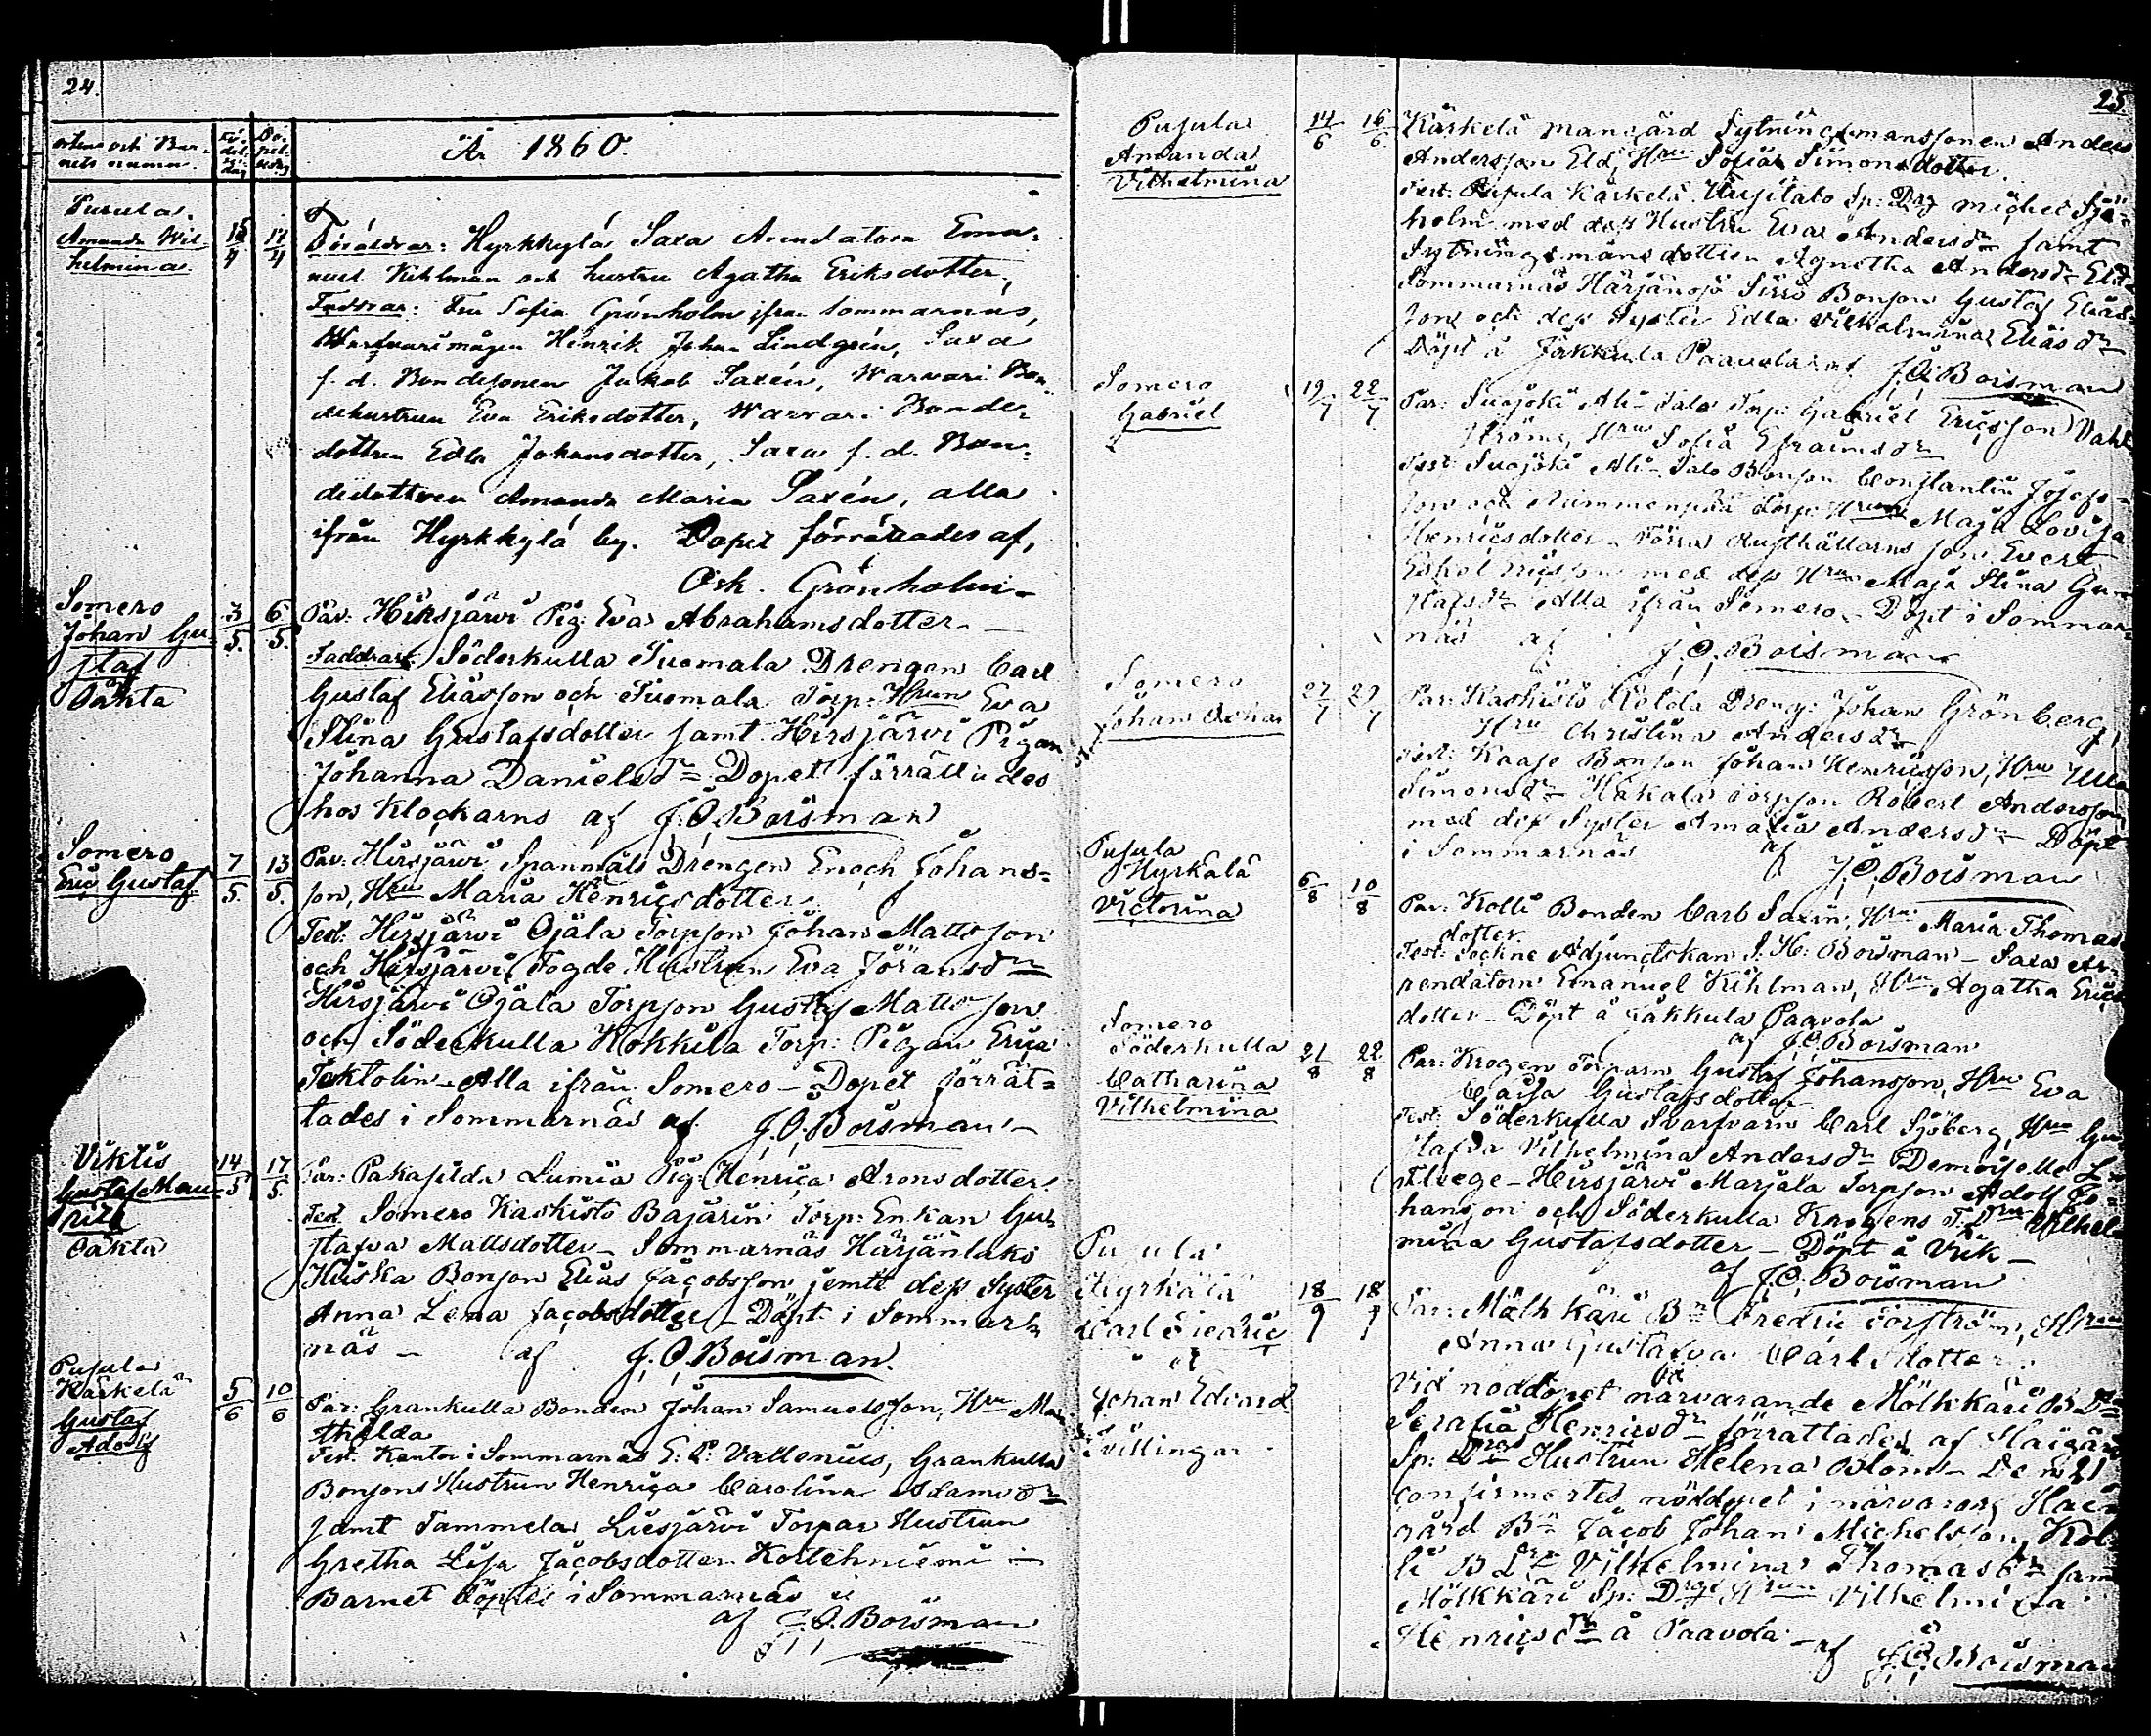 24.
ortens och Bar-
nets namn.
Fö-
del-
se-
dag
Dö-
pel-
sedag
År 1860.
Pusula.
Amanda Wil-
helmina.
15/4
17/4
Föräldrar: Hyrkkylä Saxa Arendatorn Ema-
nuel Kihlman och hustru Agatha Eriksdotter,
Faddrar: Fru Sofia Grönholm ifrån Sommarnäs,
Henrik Johan Lindgrén, Saxa
f. d. Bondesonen Jakob Saxén, Warvari Bon-
dehustrun Eva Eriksdotter, Warvari Bonde-
dottren Edla Johansdotter, Saxa f. d. Bon-
dedottren Amanda Maria Saxén, alla
ifrån Hyrkkylä by. Dopet förrättades af,
Osk. Grönholm
Somero
Johan Gu-
staf
Oäkta
3/5.
6/5.
Par: Hirsjärvi Pig: Eva Abrahamsdotter
Faddrar: Söderkulla Tuomala Drengen Carl
Gustaf Eliasson och Tuomala Torp: Hrun Eva
Stina Gustafsdotter samt Hirsjärvi Pigan
Johanna Danielsdr Dopet förrättades
hos Klockarns af J. O. Boisman
Somero
Eric Gustaf
7/5.
13/5.
Par: Hirsjärvi Spanmäls Drengen Enoch Johans-
son, Hru Maria Henricsdotter
Test: Hirsjärvi Ojala Torpson Johan Mattsson
och Hirsjärvi Fogde Hustrun Eva Göransdr
Hirsjärvi Ojala Torpson Gustaf Mattsson
och Söderkulla Hokkila Torp: Pigan Erica
Tektolin - Alla ifrån Somero - Dopet förrät-
tades i Sommarnäs af J. O. Boisman
Viktis
Gustaf Mau-
ritz
Oäkta
14/5
17/5.
Par: Pakasilda Lumia Pig: Henrica Aronsdotter
Test: Somero Kaskisto Bajarin Torp: Enkan Gu-
stafva Mattsdotter - Sommarnäs Härjänlaks
Huska Bonson Elias Jacobsson jemte dess Syster
Anna Lena Jacobsdotter - Döpt i Sommar-
näs - af J. O. Boisman.
Pusula
Kärkelä
Gustaf
Adolf
5/6
10/6
Par: Grankulla Bonden Johan Samuelsson, Hru Ma-
thilda
Test: Kantor i Sommarnäs E. P. Vallenius, Grankulla
Bonsons Hustrun Henrica Carolina Adamsdr
samt Tammela Liesjärvi Torpar Hustrun
Gretha Lisa Jacobsdotter Kortehniemi -
Barnet döptes i Sommarnäs
af J. O. Boisman
25.
Pusula
Amanda
Vilhelmina
14/6
16/6
Kärkelä mangård Sytningsmanssonen Anders
Andersson Eld, Hru Sofia Simonsdotter.
Test: Pusula Kärkelä Uusitalo Sp: Drg Michel Sjö-
holm med dess Hustru Eva Andersdr samt
Sytningsmans dottren Agnetha Andersdr Eld
Sommarnäs Härjänoja Bonson Gustaf Elias-
son och dess Syster Edla Vilhelmina Eliasdr
Döpt å Jakkula Paavola af J. O. Boisman
Somero
Gabriel
19/7
22/7
Par: Suojoki Ali-Talo Torp: Gabriel Ericsson Vahl-
ström, Hru Sofia Efraimsdr
Test: Suojoki Ali-Talo Bonson Constantin Josefs-
son och Torp: Hrun Maja Lovisa
Henricsdotter - Förra Rusthållarns son Evert
Ericsson med dess Hru Maja Stina Gu-
stafsdr Alla ifrån Somero - Döpt i Sommar-
näs af J. O. Boisman
Somero
Johan Oskar
27/7
29/7
Par: Kaskisto Dreng: Johan Grönberg,
Hru Christina Andersdr
Test: Bonson Johan Henricsson, Hru Ulla
Simonsdr Hakala Torpson Robert Andersson
med dess Syster Amalia Andersdr - Döpt
i Sommarnäs af J. O. Boisman
Pusula
Hyrkälä
Victorina
6/8
10/8
Par: Kolli Bonden Carl Saxin, Hru Maria Thomas
dotter
Test: Sockne Adjunctskan S. H. Boisman - Saxa Ar-
rendatorn Emanuel Kihlman, Hru Agatha Erics
dotter - Döpt å Jakkula Paavola
af J. O. Boisman
Somero
Söderkulla
Catharina
Vilhelmina
21/8
22/8
Par: Krogen Torparn Gustaf Johansson, Hru Eva
Caisa Gustafsdotter
Test: Söderkulla Svarfvarn Carl Sjöberg, Hru Gu-
stafva Vilhelmina Andersdr Demoiselle
Hirsjärvi Marjala Torpson Adolf Jo-
hansson och Söderkulla Krogens Vilhel-
mina Gustafsdotter - Döpt å Viik -
af J. O. Boisman
Pusula
Hyrkälä
Carl Fredric
och
Johan Edvard
Tvillingar
18/9
18/9
Par: Mölkkäri Bn Fredric Forström, Hrun
Anna Gustafva Carlsdotter.
Vid nöddopet närvarande Mölkkäri
Serafia Henricsdr förrättades af
Sp: Hustrun Helena Blom - Den 21
confirmertes nöddopet i närvaro af
gård Bn Jacob Johan Michelsson, Kol-
li Vilhelmina Thomasdr sam
Mölkkäri Sp: Drgs Hrun Vilhelmina
Henricsdr å Paavola - af J. O. Boisman